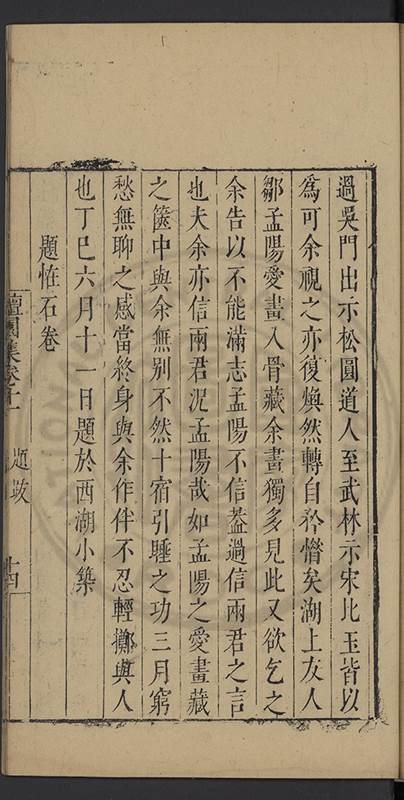 過吳門出示松圓道人至武林示宋比玉皆以
爲可余視之亦復煥然轉自矜惜矣湖上友人
鄒孟陽愛畫入骨藏余畫獨多見此又欲乞之
余告以不能滿志孟陽不信蓋過信兩君之言
也夫余亦信兩君況孟陽哉如孟陽之愛畫藏
之篋中與余無別不然十宿引睡之功三月窮
愁無聊之感當終身與余作伴不忍輕擲與人
也丁巳六月十一日題於西湖小築
題怪石卷
檀園集卷十一
題跋
十四